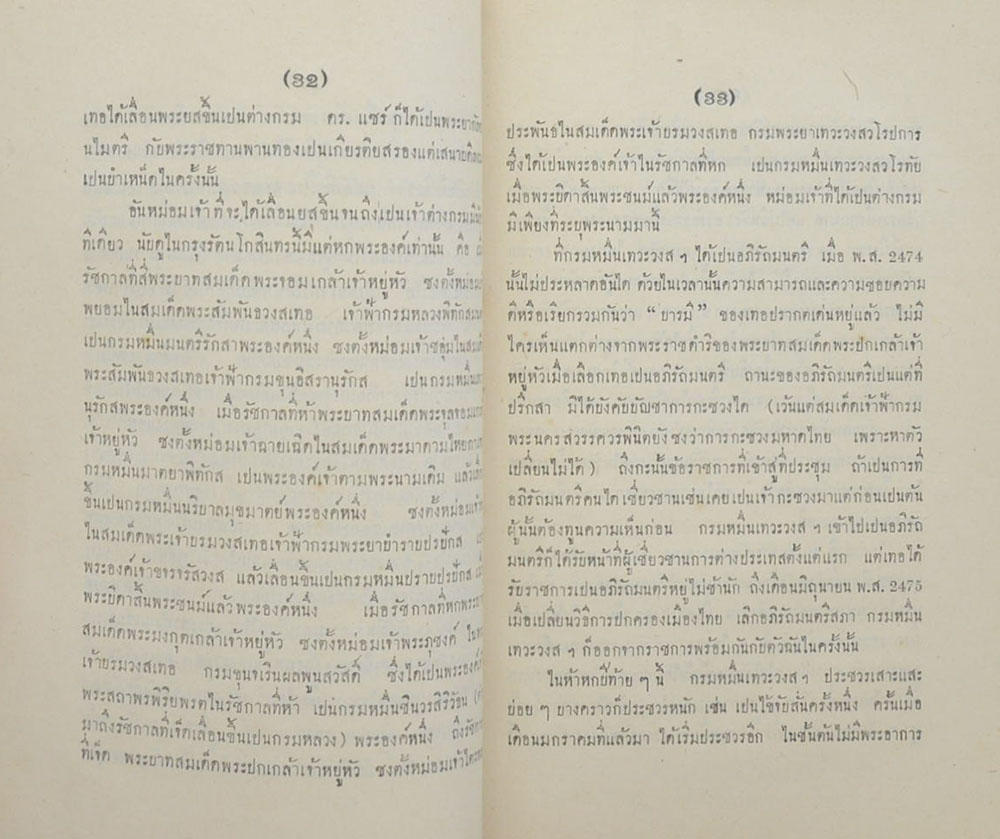 (32)
เทอได้เลื่อนพระยสขึ้นเปนต่างกรม ดร. แซร์ ก็ได้เปนพระยากัล
นไมตรี กับพระราชทานพานทองเปนเกียรติยสรองแต่เสนาบดี
เปนบำเหน็ดในครั้งนั้น
อันหม่อมเจ้าที่จะได้เลื่อนยสขึ้นจนถึงเปนเจ้าต่างกรมมี
ทีเดียว นับดูในกรุงรัตนโกสินทรนี้มีแต่หกพระองค์เท่านั้น คือ
รัชกาลที่สี่พระบาทสมเด็ดพระจอมเกล้าเจ้าหยู่หัว ซงตั้งหม่อม
พยอมในสมเด็ดพระสัมพันธวงสเทอ เจ้าฟ้ากรมหลวงพิทักสมน
เปนกรมหมื่นมนตรีรักสาพระองค์หนึ่ง ซงตั้งหม่อมเจ้าชอุ่มในสมเด็
พระสัมพันธวงสเทอเจ้าฟ้ากรมขุนอิสรานุรักส เปนกรมหมื่น
นุรักสพระองค์หนึ่ง เมื่อรัชกาลที่ห้าพระบาทสมเด็ดพระจุลจอมเกล
เจ้าหยู่หัว ซงตั้งหม่อมเจ้าฉายเฉิดในสมเด็ดพระมาตามไหยกา
กรมหมื่นมาตยาพิทักส เปนพระองค์เจ้าตามพระนามเดิม แล้วเลื่
ขึ้นเปนกรมหมื่นนริบาลมุขมาตย์พระองค์หนึ่ง ซงตั้งหม่อมเจ้า
ในสมเด็ดพระเจ้าบรมวงสเทอเจ้าฟ้ากรมพระยาบำราบปรปักส
พระองค์เจ้าขจรจรัสวงส แล้วเลื่อนขึ้นเปนกรมหมื่นปราบปรปักส
พระบิดาสิ้นพระชนม์แล้วพระองค์หนึ่ง เมื่อรัชกาลที่หกพระบา
สมเด็ดพระมงกุดเกล้าเจ้าหยู่หัว ซงตั้งหม่อมเจ้าพระภุชงค์ ในพ
เจ้าบรมวงสเทอ กรมขุนเจรินผลพูนสวัสดิ์ ซึ่งได้เปนพระองค์เจ้
พระสถาพรพิริยพรตในรัชกาลที่ห้า เปนกรมหมื่นชินวรสิริวัธน
มาถึงรัชกาลที่เจ็ดเลื่อนขึ้นเปนกรมหลวง) พระองค์หนึ่ง ถึงรัชกา
ที่เจ็ด พระบาทสมเด็ดพระปกเกล้าเจ้าหยู่หัว ซงตั้งหม่อมเจ้าไตร
(33)
ประพันธ์ในสมเด็ดพระเจ้าบรมวงสเทอ กรมพระยาเทวะวงสวโรปการ
ซึ่งได้เปนพระองค์เจ้าในรัชกาลที่หก เปนกรมหมื่นเทวะวงสวโรทัย
เมื่อพระบิดาสิ้นพระชนม์แล้วพระองค์หนึ่ง หม่อมเจ้าที่ได้เปนต่างกรม
มีเพียงที่ระบุพระนามมานี้
ที่กรมหมื่นเทวะวงส ฯ ได้เปนอภิรัถมนตรี เมื่อ พ.ส. 2474
นั้นไม่ประหลาดอันใด ด้วยในเวลานั้นความสามารถและความชอบความ
ดีหรือเรียกรวมกันว่า “บารมี” ของเทอปรากตเด่นหยู่แล้ว ไม่มี
ไครเห็นแตกต่างจากพระราชดำริของพระบาทสมเด็ดพระปกเกล้าเจ้า
หยู่หัวเมื่อเลือกเทอเปนอภิรัถมนตรี ถานะของอภิรัถมนตรีเปนแต่ที่
ปรึกสา มิได้บังคับบัญชาการกะซวงใด (เว้นแต่สมเด็ดเจ้าฟ้ากรม
พระนครสวรรควรพินิตยัง ซงว่าการกะซวงมหาดไทย เพราะหาตัว
เปลี่ยนไม่ได้) ถึงกะนั้นข้อราชการที่เข้าสู่ที่ประชุม ถ้าเปนการที่
อภิรัถมนตรีคนใดเชี่ยวชานเช่นเคยเปนเจ้ากะซวงมาแต่ก่อนเปนต้น
ผู้นั้นต้องทูนความเห็นก่อน กรมหมื่นเทวะวงส ฯ เข้าไปเปนอภิรัถ
มนตรีก็ได้รับหน้าที่ผู้เชี่ยวชานการต่างประเทสตั้งแต่แรก แต่เทอได้
รับราชการเปนอภิรัถมนตรีหยู่ไม่ช้านัก ถึงเดือนมิถุนายน พ.ส. 2475
เมื่อเปลี่ยนวิธีการปกครองเมืองไทย เลิกอภิรัถมนตรีสภา กรมหมื่น
เทวะวงส ฯ ก็ออกจากราชการพร้อมกันกับตัวฉันในครั้งนั้น
ในห้าหกปีท้าย ๆ นี้ กรมหมื่นเทวะวงส ฯ ประชวรเสาะแสะ
บ่อย ๆ บางคราวก็ประชวรหนัก เช่น เปนไข้จับสั่นครั้งหนึ่ง ครั้นเมื่อ
เดือนมกราคมที่แล้วมา ได้เริ่มประชวรอีก ในชั้นต้นไม่มีพระอาการ